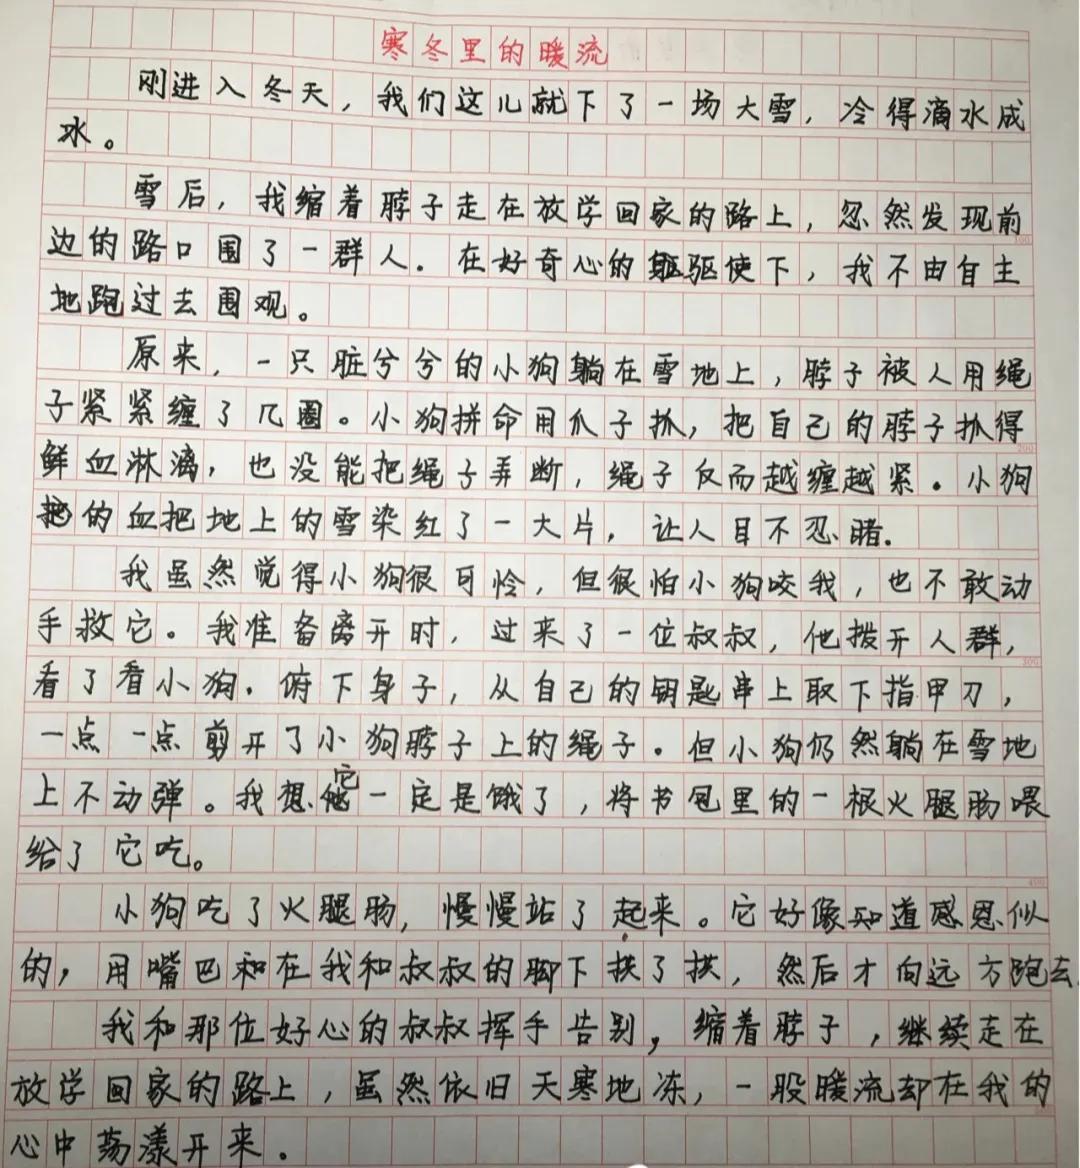 寒冬里的暖流
刚进入冬天，我们这儿就下了一场大雪，冷得滴水成
冰。
雪后，我缩着脖子走在放学回家的路上，忽然发现前
边的路口围了一群人。在好奇心的驱使下，我不由自主
地跑过去围观。
原来，一只脏兮兮的小狗躺在雪地上，脖子被人用绳
子紧紧缠了几圈。小狗拼命用爪子抓，把自己的脖子抓得
鲜血淋漓，也没能把绳子弄断，绳子反而越缠越紧。小狗
的血把地上的雪染红了一大片，让人目不忍睹.
我虽然觉得小狗很可怜，但很怕小狗咬我，也不敢动
手救它。我准备离开时，过来了一位叔叔，他拨开人群，
看了看小狗.俯下身子，从自己的钥匙串上取下指甲刀，
一点一点剪开了小狗脖子上的绳子。但小狗仍然躺在雪地
上不动弹。我想它一定是饿了，将书包里的一根火腿肠喂
给了它吃。
小狗吃了火腿肠，慢慢站了起来。它好像知道感恩似
的，用嘴巴和在我和叔叔的脚下拱了拱，然后才向远方跑去.
我和那位好心的叔叔挥手告别，缩着脖子，继续走在
放学回家的路上，虽然依旧天寒地冻，一股暖流却在我的
心中荡漾开来.